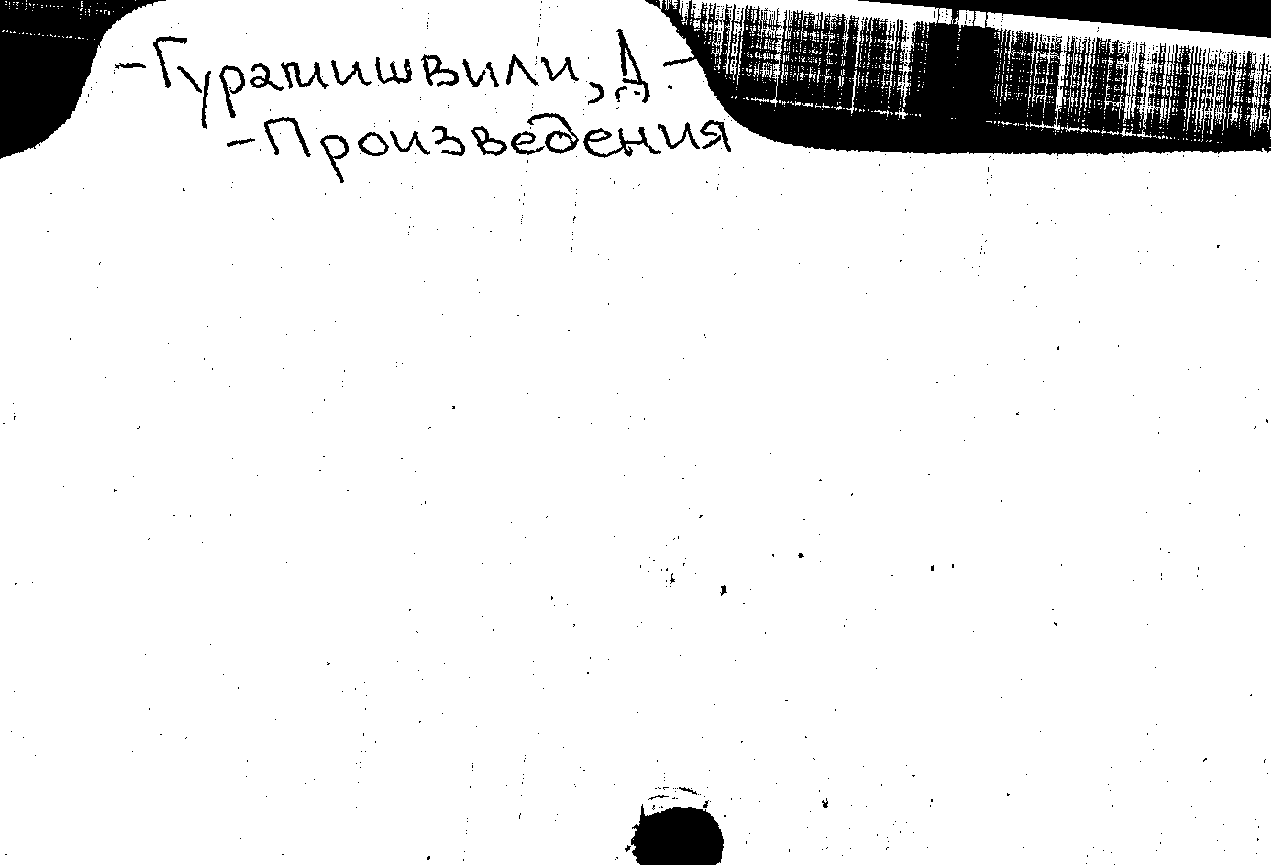 -Гурамишвили, Д.-
-Произведения